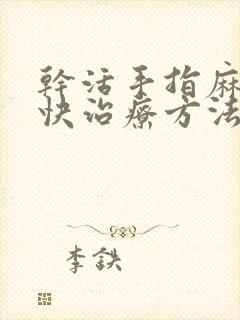 幹活手指麻
快治療方法
李鉄